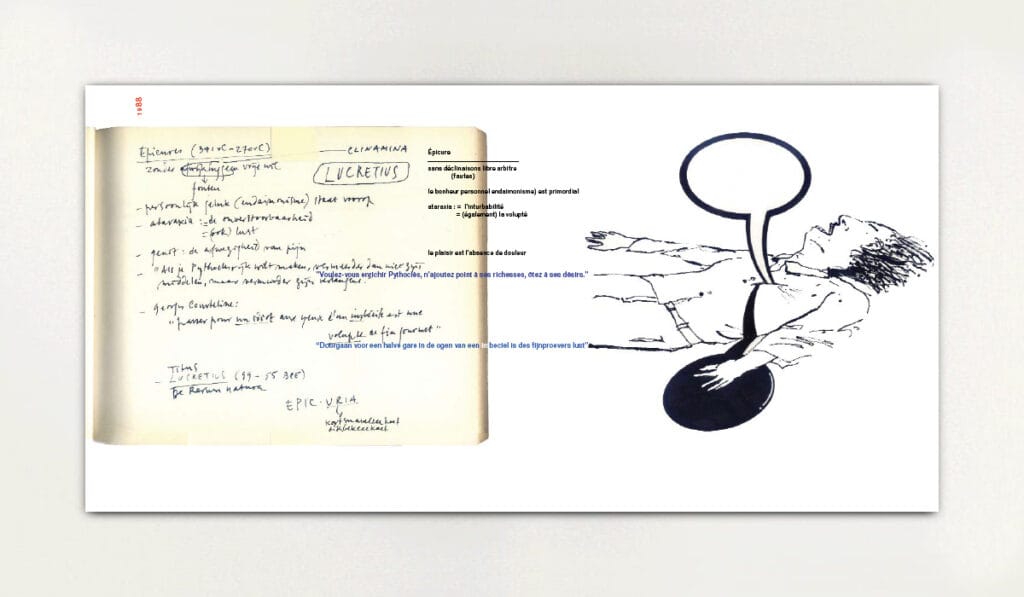 1988
Epicurus (341vC-270vC)
zonder afwijkingen vrije wil
fouten
- persoonlijk geluk (endaimonisme) staat voorop
- ataraxia := de onverstoorbaarheid
= (ook) lust
- genot : de afwezigheid van pijn
- "Als je Pythocles rijk wilt maken, vermeerder dan niet zijn
middelen, maar verminder zijn verlangens.
- Georges Courteline:
"passer pour un idiot aux yeux d'un imbécile est une
volupté de fin gourmet"
Titus
- LUCRETIUS (99-55 BCE)
De Rerum natura
EPIC·URIA
CLINAMINA
LUCRETIUS
Épicure
sans déclinaisons libre arbitre
(fautes)
le bonheur personnel endaimonisme) est primordial
ataraxie : = l'inturbabilité
= (également) la volupté
le plaisir est l'absence de douleur
"Voulez-vous enrichir Pythoclès, n'ajoutez point à ses richesses, ôtez à ses désirs."
"Doorgaan voor een halve gare in de ogen van een imbeciel is des fijnproevers lust"